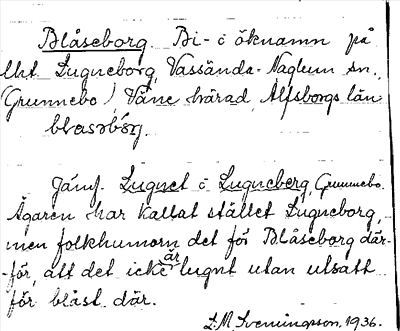 Blåseborg. Bi- o. öknamn på
lht. Lugneborg, Vassända-Naglum sn.,
(Grunnebo), Väne härad, Älfsborgs län
blåsəbórj.
Jämf. Lugnet o. Lugneberg, Grunnebo.
Ägaren har kallat stället Lugneborg,
men folkhumorn det för Blåseborg där-
för, att det icke är lugnt utan utsatt
för blåst där.
L. M. Svenungsson, 1936.